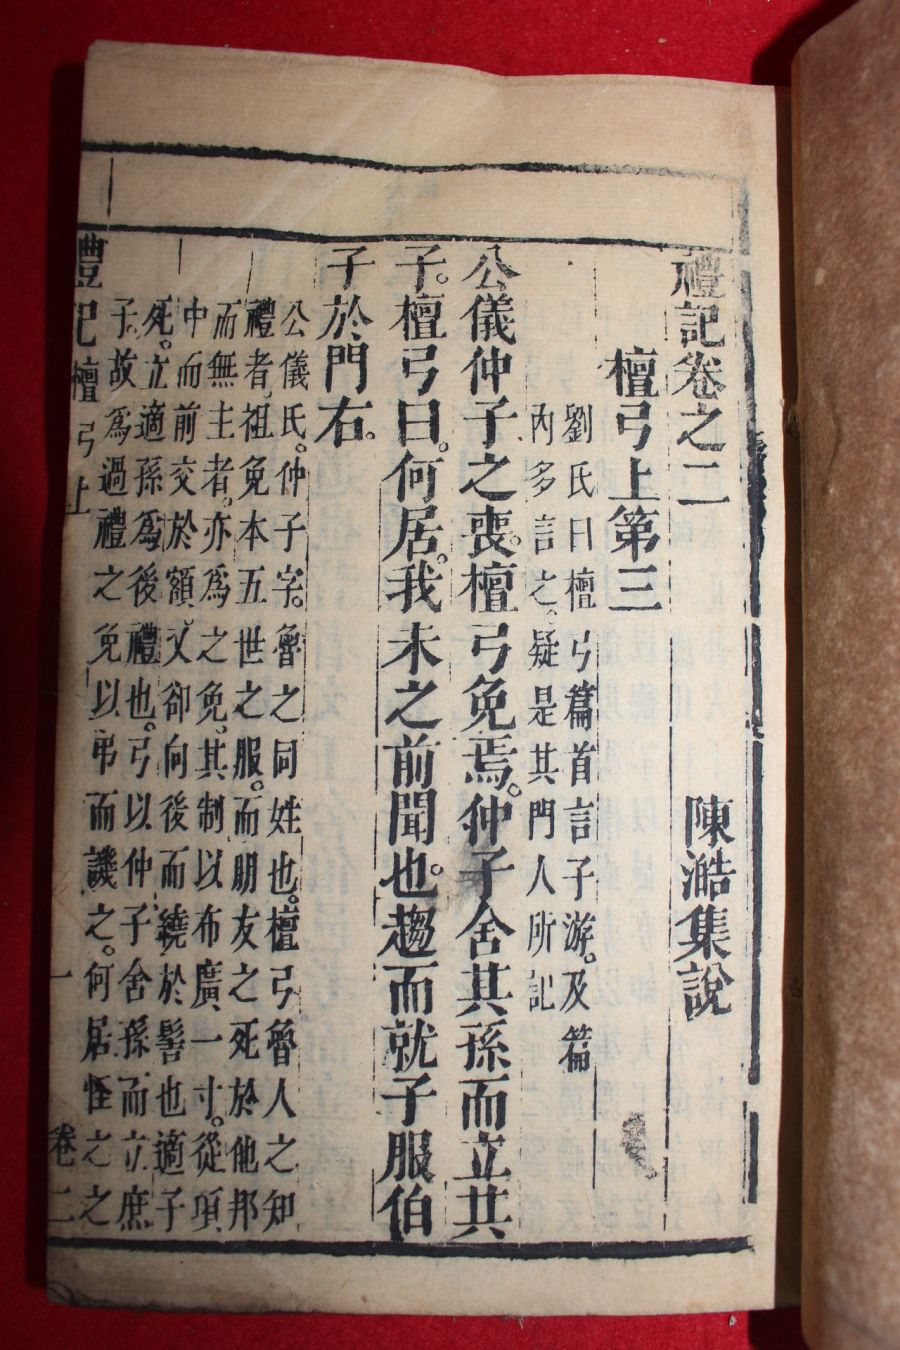 禮記卷之二　陳澔集說
檀弓上第三
劉氏曰檀弓篇首言子游。及篇
內多言之。疑是其門人所記
公儀仲子之喪。檀弓免焉。仲子舍其孫而立其
子。檀弓曰。何居。我未之前聞也。趨而就子服伯
子於門右。
公儀氏。仲子字。魯之同姓也。檀弓魯人之知
禮者。祖免本五世之服。而朋友之死於他邦
而無主者。亦為之免。其制以布廣一寸。從項
中而前交於額。又卻向後而繞於髻也適子
死。立適孫為後禮也。弓以仲子舍孫而立庶
子。故為過禮之免以弔而譏之。何居怪之之
禮記檀弓上　一　卷二